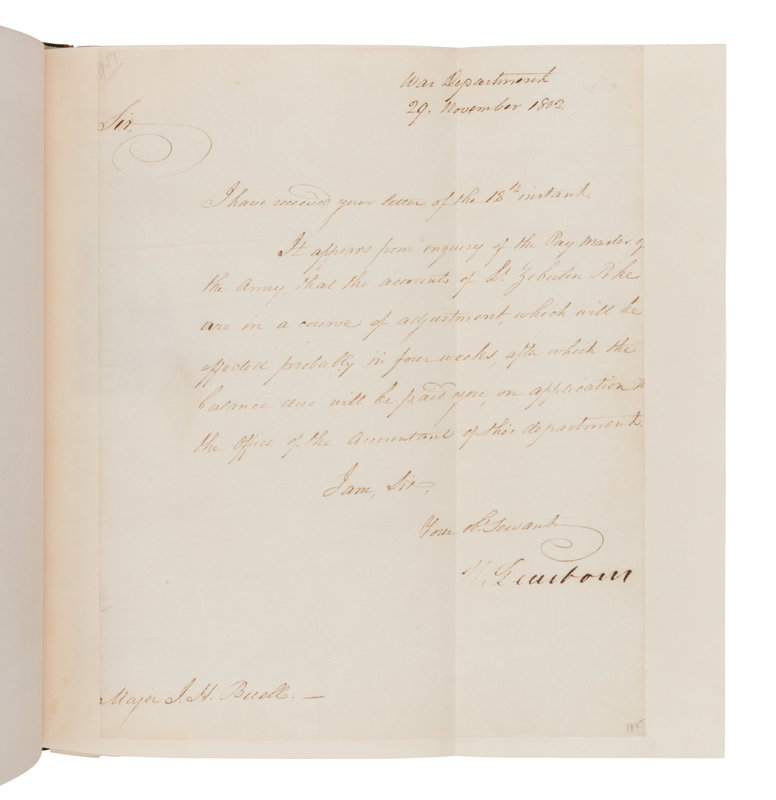 War Department
29. November 1802.
Sir.
I have received your letter of the 18th. instant.
It appears from enquiry of the Pay Master of
the Army, that the accounts of Lt. Zebulon Pike
are in a course of adjustment, which will be
effected probably in four weeks, after which the
balance due will be paid you, on application to
the Office of the Accountant of this department.
I am, Sir,
Your Obt. Servant
H. Dearborn
Major J. H. Buell. —
105